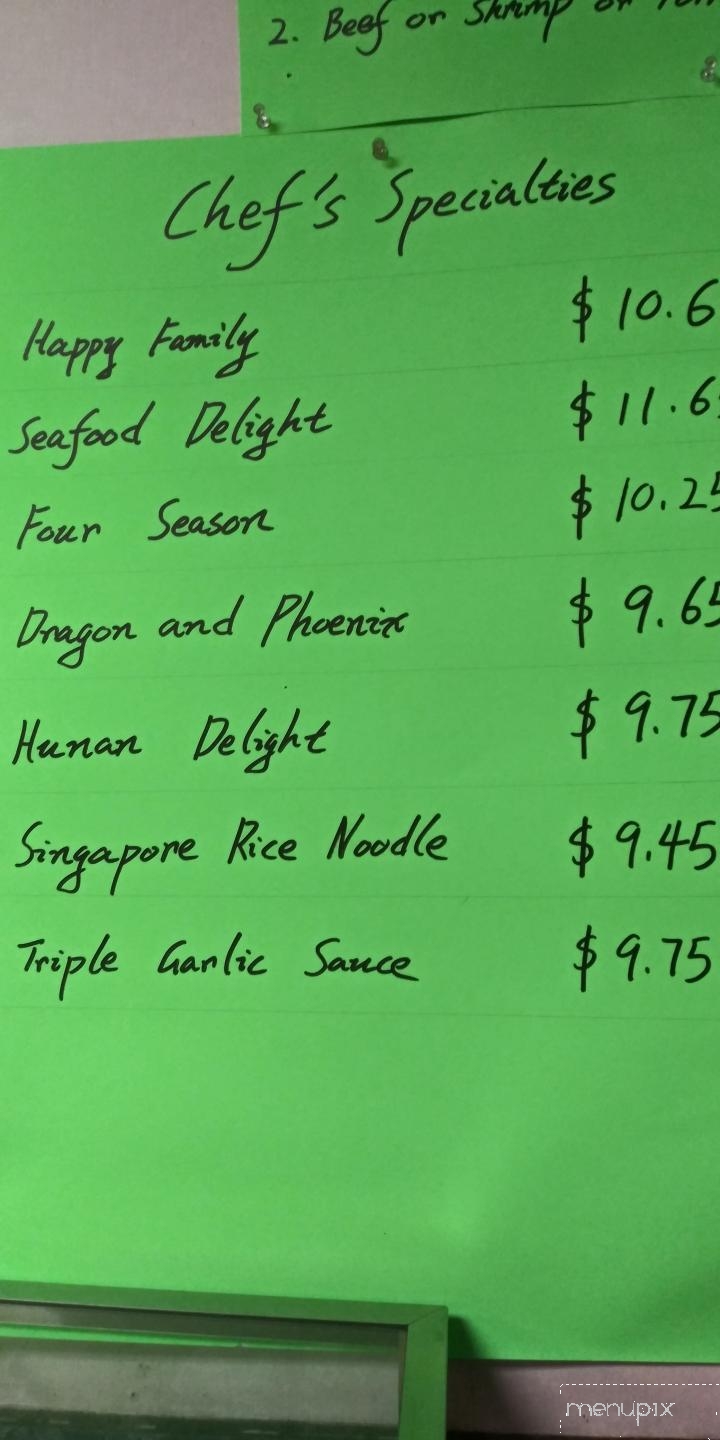 2. Beef or Shrimp or
Chef's Specialties
Happy Family $ 10.6
Seafood Delight $ 11.65
Four Season $ 10.25
Dragon and Phoenix $ 9.65
Hunan Delight $ 9.75
Singapore Rice Noodle $ 9.45
Triple Garlic Sauce $ 9.75
menupix